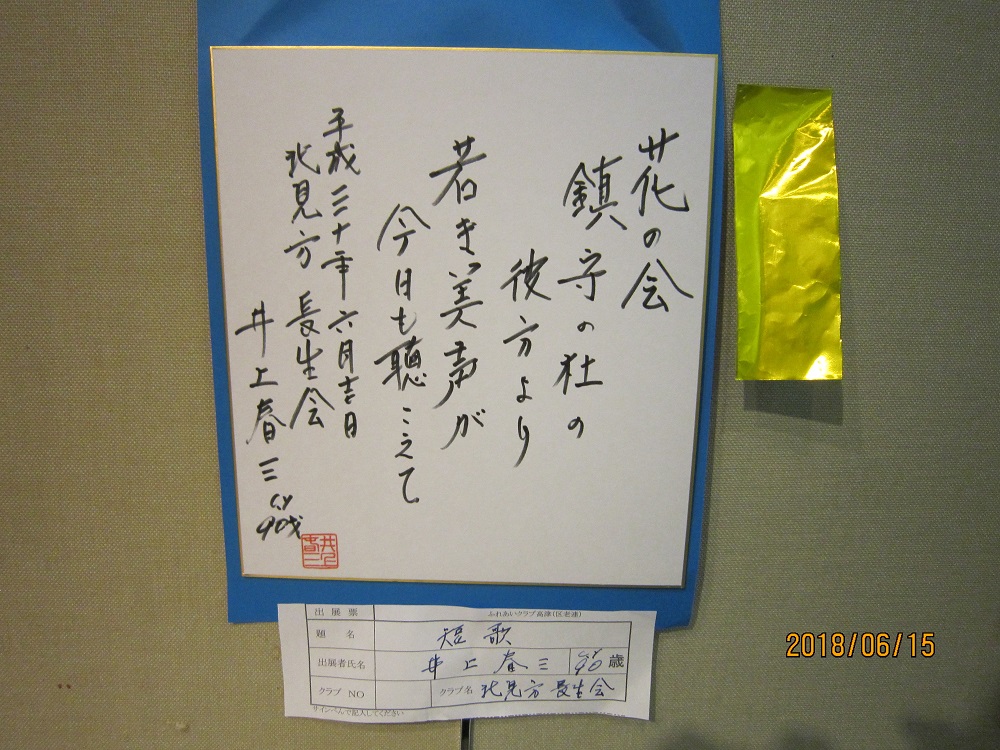 花の会
鎮守の杜の
彼方より
若き美声が
今日も聴こえて
平成三十年六月吉日
北見方 長生会
井上春三
90才
出展票
ふれあいクラブ高津(区老連)
題 名
短歌
出展者氏名
井上春三
90歳
クラブ NO
クラブ名
北見方長生会
サインペンで記入してください
2018/06/15